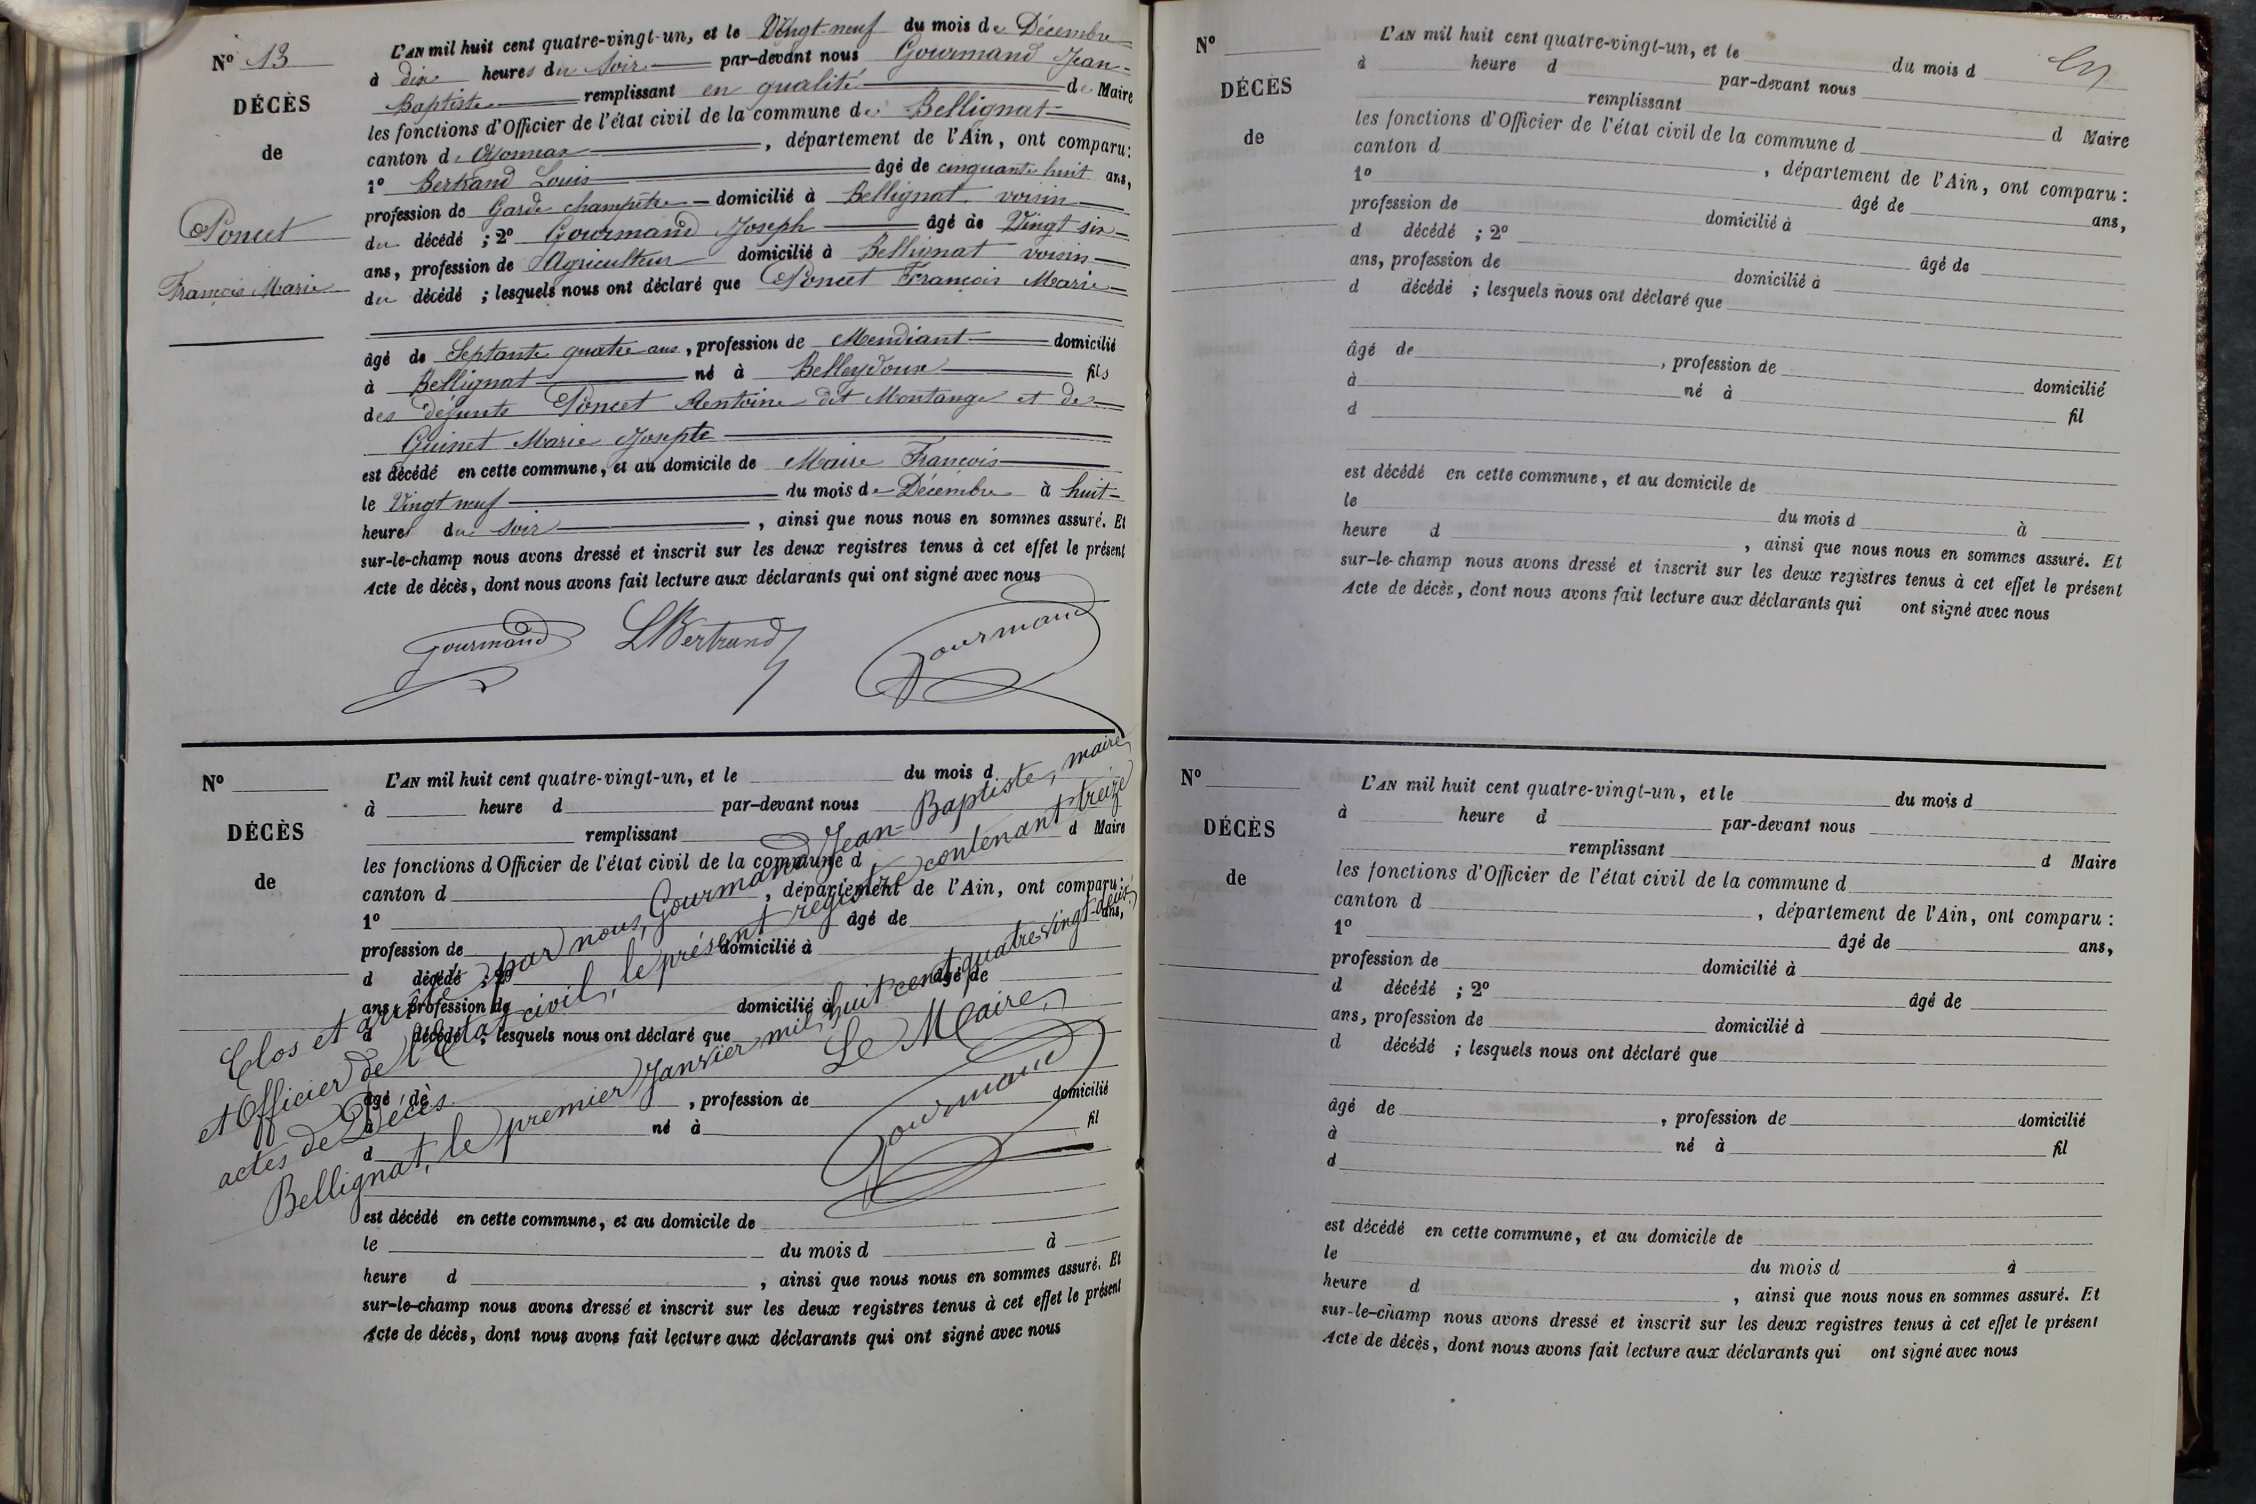 N° 13
DÉCÈS
de
Poncet
François Marie
L'AN mil huit cent quatre-vingt-un, et le Vingt-neuf du mois de Décembre
à dix heures du soir par-devant nous Gourmand Jean-
Baptiste remplissant en qualité de Maire
les fonctions d'Officier de l'état civil de la commune de Bellignat
canton d'Oyonnax, département de l'Ain, ont comparu :
1° Bertrand Louis âgé de cinquante huit ans,
profession de Garde champêtre domicilié à Bellignat voisin
du décédé ; 2° Gourmand Joseph âgé de Vingt six
ans, profession de Agriculteur domicilié à Bellignat voisin
du décédé ; lesquels nous ont déclaré que Poncet François Marie
âgé de Septante quatre ans, profession de Mendiant domicilié
à Bellignat né à Belleydoux fils
des défunts Poncet Antoine dit Montange et de
Guinet Marie Josepte
est décédé en cette commune, et au domicile de Maire François
le Vingt neuf du mois de Décembre à huit
heures du soir, ainsi que nous nous en sommes assuré. Et
sur-le-champ nous avons dressé et inscrit sur les deux registres tenus à cet effet le présent
Acte de décès, dont nous avons fait lecture aux déclarants qui ont signé avec nous
Gourmand LBertrand Gourmand
N°
DÉCÈS
de
L'AN mil huit cent quatre-vingt-un, et le du mois d
à heure d par-devant nous
remplissant d Maire
les fonctions d'Officier de l'état civil de la commune d
canton d , département de l'Ain, ont comparu :
1° âgé de ans,
profession de domicilié à
d décédé ; 2° âgé de
ans, profession de domicilié à
d décédé ; lesquels nous ont déclaré que
âgé de , profession de domicilié
à né à fil
d
est décédé en cette commune, et au domicile de
le du mois d à
heure d , ainsi que nous nous en sommes assuré. Et
sur-le-champ nous avons dressé et inscrit sur les deux registres tenus à cet effet le présent
Acte de décès, dont nous avons fait lecture aux déclarants qui ont signé avec nous
Clos et arrêté par nous, Gourmand Jean-Baptiste, maire
et Officier de l'Etat civil, le présent registre contenant treize
actes de Décès.
Bellignat, le premier Janvier mil huit cent quatre-vingt-deux.
Le Maire,
Gourmand
N°
DÉCÈS
de
L'AN mil huit cent quatre-vingt-un, et le du mois d
à heure d par-devant nous
remplissant d Maire
les fonctions d'Officier de l'état civil de la commune d
canton d , département de l'Ain, ont comparu :
1° âgé de ans,
profession de domicilié à
d décédé ; 2° âgé de
ans, profession de domicilié à
d décédé ; lesquels nous ont déclaré que
âgé de , profession de domicilié
à né à fil
d
est décédé en cette commune, et au domicile de
le du mois d à
heure d , ainsi que nous nous en sommes assuré. Et
sur-le-champ nous avons dressé et inscrit sur les deux registres tenus à cet effet le présent
Acte de décès, dont nous avons fait lecture aux déclarants qui ont signé avec nous
N°
DÉCÈS
de
L'AN mil huit cent quatre-vingt-un, et le du mois d
à heure d par-devant nous
remplissant d Maire
les fonctions d'Officier de l'état civil de la commune d
canton d , département de l'Ain, ont comparu :
1° âgé de ans,
profession de domicilié à
d décédé ; 2° âgé de
ans, profession de domicilié à
d décédé ; lesquels nous ont déclaré que
âgé de , profession de domicilié
à né à fil
d
est décédé en cette commune, et au domicile de
le du mois d à
heure d , ainsi que nous nous en sommes assuré. Et
sur-le-champ nous avons dressé et inscrit sur les deux registres tenus à cet effet le présent
Acte de décès, dont nous avons fait lecture aux déclarants qui ont signé avec nous